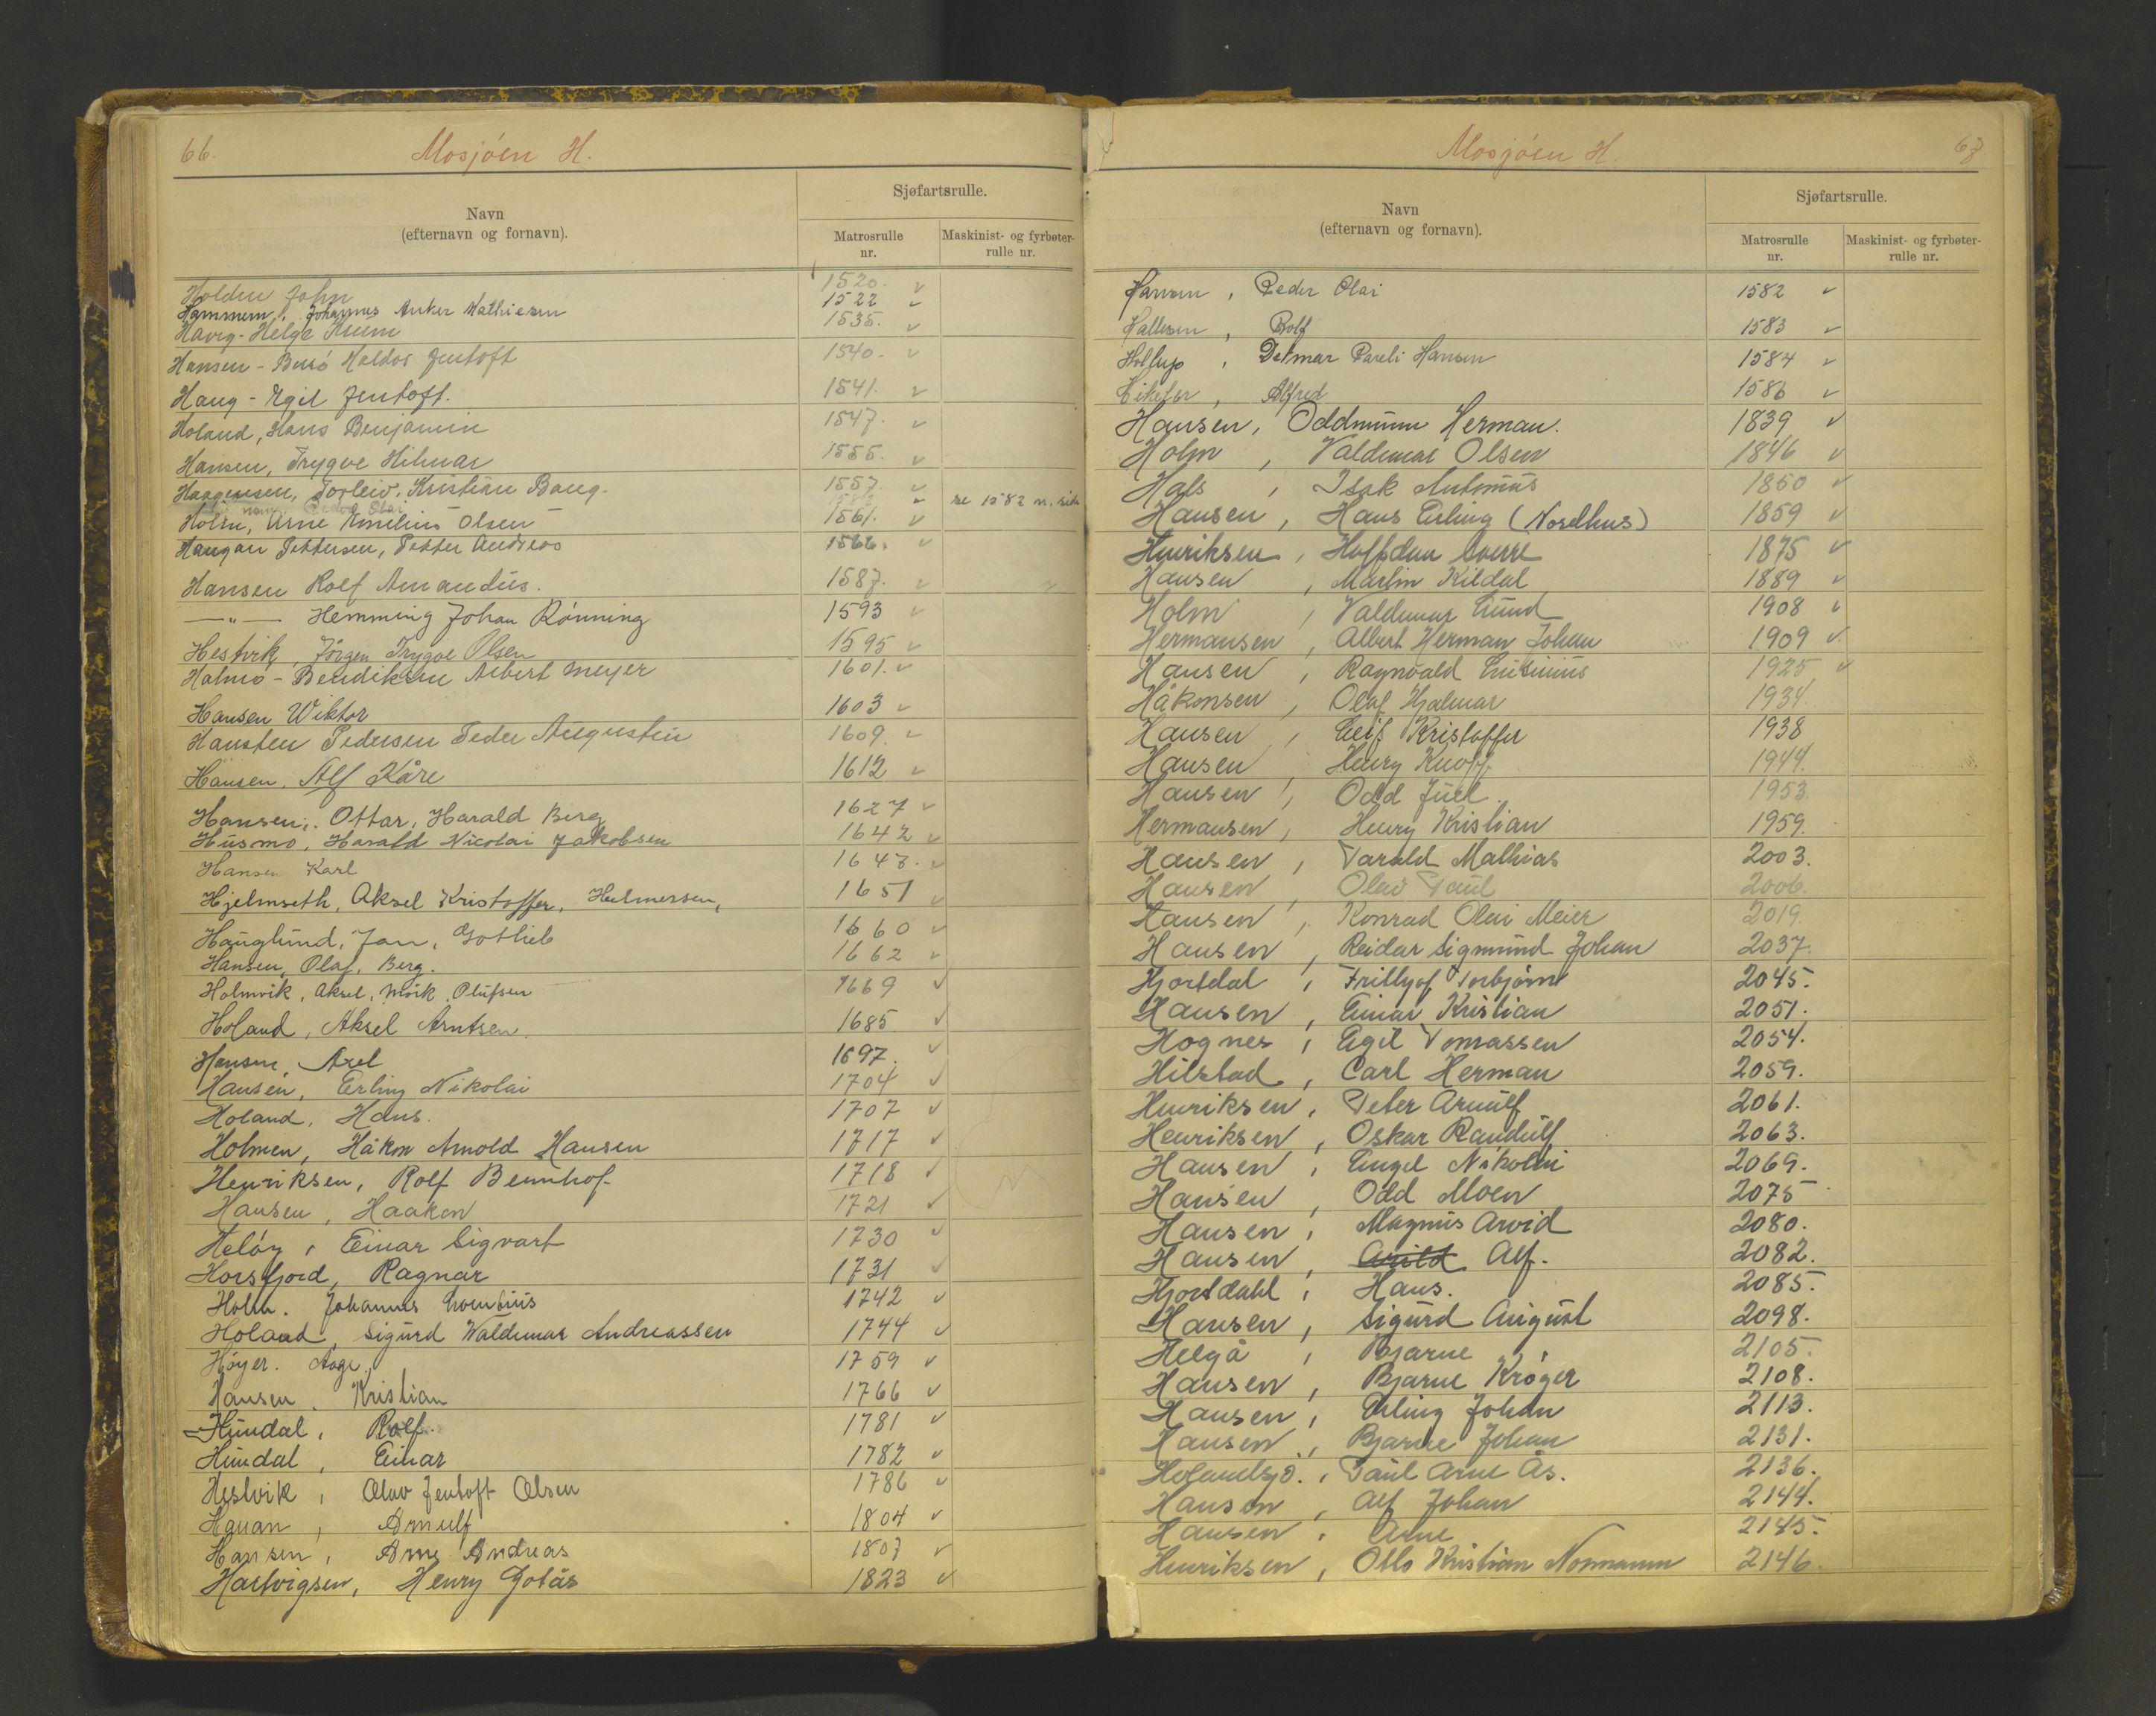 66.
Mosjöen H.
Navn
(efternavn og fornavn).
Sjøfartsrulle.
Matrosrulle
nr.
Maskinist- og fyrbøter-
rulle nr.
Holden John 1520. v
Hammern, Johannes Anker Mathiesen 1522 v
Havig-Helge 1535. v
Hansen - Jentoft 1540. v
Haug - Egil Jentoft. 1541. v
Holand, Hans Benjamin 1547. v
Hansen, Trygve Hilmar 1555. v
Haagensen, Torleiv. Kristian Baug. 1557. v
Peder Olai v se 1582 n. side
Holm, Arne Emelius Olsen 1561. v
Haugan Pettersen, Petter Andreas 1566. v
Hansen Rolf Amandus. 1587. v
—"— Hemming Johan Rönning 1593 v
Hestvik, Jörgen Trygve Olsen 1595 v
Holmo - Bendiksen Albert Meyer 1601. v
Hansen Wiktor 1603 v
Hansten Pedersen Peder Augustin 1609. v
Hansen. Alf Kåre 1612 v
Hansen, Ottar, Harald Berg 1627 v
Husmo, Harald Nicolai Jakobsen 1642 v
Hansen Karl 1647. v
Hjelmseth, Aksel Kristoffer, Helmersen, 1651 v
Hauglund, Jan, Gotlieb 1660 v
Hansen, Olaf, Berg. 1662 v
Holmvik, Aksel, Mörk, Olufsen 1669 v
Holand, Aksel Arntsen. 1685 v
Hansen, Axel 1697. v
Hansen, Erling Nikolai 1704 v
Holand, Hans. 1707 v
Holmen, Håkon Arnold Hansen 1717 v
Henriksen, Rolf Bernhof 1718 v
Hansen, Haakon 1721 v
Helöy, Einar Sigvart 1730 v
Horsfjord, Ragnar 1731 v
Holm. Johannes Lorentius 1742 v
Holand, Sigurd Waldemar Andreassen 1744 v
Höyer. Aage. 1759 v
Hansen, Kristian 1766 v
Hundal, Rolf. 1781 v
Hundal, Einar 1782 v
Hestvik, Olav Jentoft Olsen 1786 v
Hauan, Arnulf 1804 v
Hansen, Arne Andreas 1807 v
Hartvigsen, Henry Gotås 1823 v
Mosjöen H.
67.
Navn
(efternavn og fornavn).
Sjøfartsrulle.
Matrosrulle
nr.
Maskinist- og fyrbøter-
rulle nr.
Hansen, Peder Olai 1582 v
Hallesen, Rolf 1583 v
Hollup, Detmar Pareli Hansen 1584 v
Alfred 1586 v
Hansen, Oddmunn Herman. 1839 v
Holm, Valdemar Olsen 1846 v
Hals, Isak Antonius 1850 v
Hansen, Hans Erling (Nordhus) 1859 v
Henriksen, Halfdan Sverre 1875 v
Hansen, Martin Kildal 1889 v
Holm, Valdemar Lund 1908 v
Hermansen, Albert Herman Johan 1909 v
Hansen, Ragnvald 1925 v
Håkonsen, Olaf Hjalmar 1934.
Hansen, Leif Kristoffer 1938
Hansen, Henry Knoff 1944.
Hansen, Odd Juel. 1953.
Hermansen, Henry Kristian 1959.
Hansen, Parald Mathias 2003.
Hansen, Olav Paul 2006.
Hansen, Konrad Olai Meier 2019.
Hansen, Reidar Sigmund Johan 2037.
Hjortdal, Frithjof Torbjörn 2045.
Hansen, Einar Kristian 2051.
Hognes, Egil Tomassen 2054.
Hilstad, Carl Herman 2059.
Henriksen, Peter Arnulf 2061.
Henriksen, Oskar Randulf 2063.
Hansen, Engel Nikolai 2069.
Hansen, Odd Moen 2075
Hansen, Magnus Arvid 2080.
Hansen, Arild Alf. 2082.
Hjortdahl, Hans. 2085.
Hansen, Sigurd August 2098.
Helgå, Bjarne 2105.
Hansen, Bjarne Kröger 2108.
Hansen, Erling Johan 2113.
Hansen, Bjarne Johan 2131.
Holandsjö., Paul Arne Ås. 2136.
Hansen, Alf Johan 2144.
Hansen, Arne 2145.
Henriksen, Otto Kristian Normann 2146.